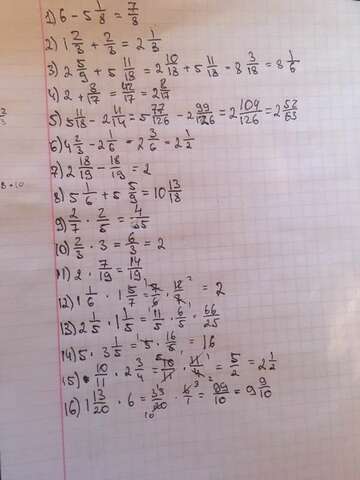 1) 6 - 5 1/8 = 7/8
2) 1 2/3 + 2/3 = 2 1/3
3) 2 5/9 + 5 11/18 = 2 10/18 + 5 11/18 = 8 3/18 = 8 1/6
4) 2 + 8/17 = 42/17 = 2 8/17
5) 5 11/18 - 2 11/14 = 5 77/126 - 2 99/126 = 2 104/126 = 2 52/63
6) 4 2/3 - 2 1/6 = 2 3/6 = 2 1/2
7) 2 18/19 - 18/19 = 2
8 + 10
8) 5 1/6 + 5 5/9 = 10 13/18
9) 2/7 · 2/5 = 4/35
10) 2/3 · 3 = 6/3 = 2
11) 2 · 7/19 = 14/19
12) 1 1/6 · 1 5/7 = 7/6 · 12/7 = 2
13) 2 1/5 · 1 1/5 = 11/5 · 6/5 · 66/25
14) 5 · 3 1/5 = 5 · 16/5 = 16
15) 10/11 · 2 3/4 = 10/11 · 11/4 = 5/2 = 2 1/2
16) 1 13/20 · 6 = 33/20 · 6/1 = 99/10 = 9 9/10